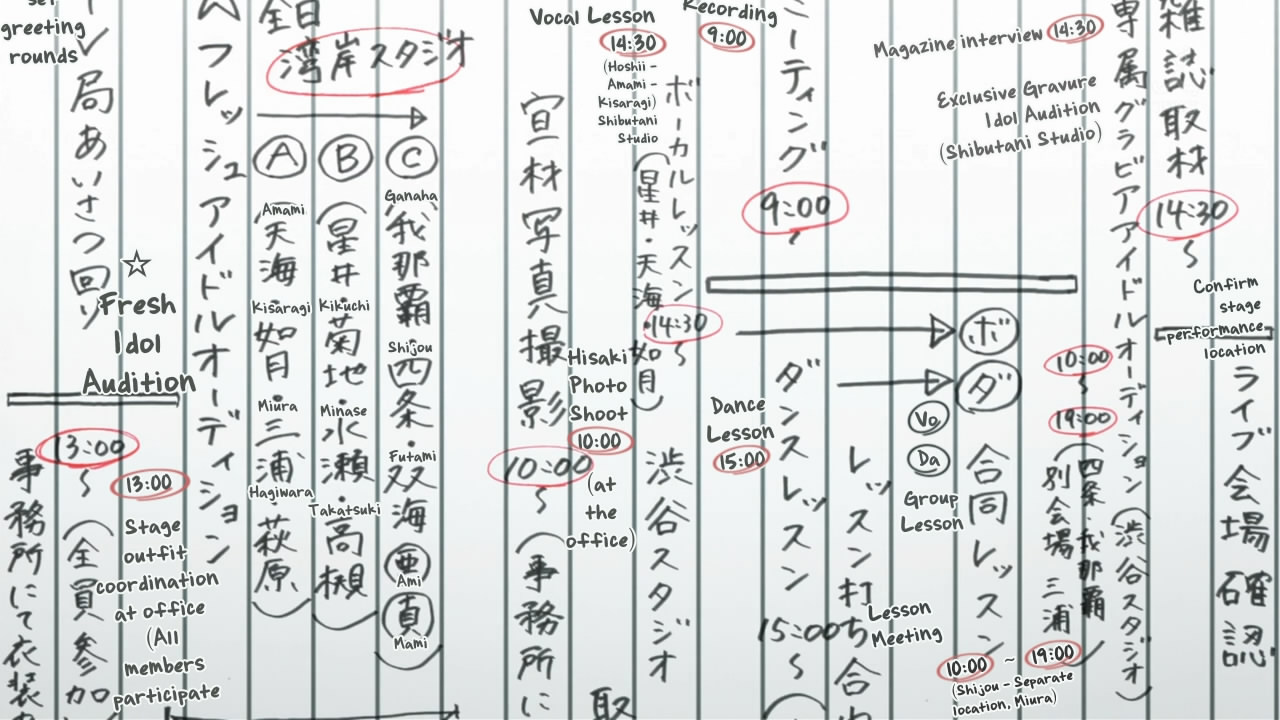 set
greeting
rounds
局あいさつ回り
☆
Fresh
Idol
Audition
13:00
事務所にて衣装
13:00
～(全員参加
Stage
outfit
coordination
at office
(All
members
participate
フレッシュアイドルオーディション
全日
湾岸スタジオ
A
B
C
Amami
天海
Kisaragi
如月
Miura
三浦
Hagiwara
萩原
星井
Kikuchi
菊地
Minase
水瀬
Takatsuki
高槻
Ganaha
我那覇
Shijou
四条
Futami
双海
亜
Ami
真
Mami
宣材写真撮影
10:00
～(事務所に
Hisaki
Photo
Shoot
10:00
(at
the
office)
取
Vocal Lesson
14:30
(Hoshii -
Amami -
Kisaragi)
Shibutani
Studio
ボーカルレッスン
14:30～
(星井・天海・如月)
渋谷スタジオ
Recording
9:00
ーティング
9:00
～
ダンスレッスン
15:00
～
Dance
Lesson
15:00
レッスン打ち合
Lesson
Meeting
ボ
ダ
合同レッスン
Vo
Da
Group
Lesson
Magazine interview 14:30
Exclusive Gravure
Idol Audition
(Shibutani Studio)
専属グラビアアイドルオーディション(渋谷スタジオ)
10:00
～
19:00
(四条・我那覇
別会場 三浦)
10:00 ~ 19:00
(Shijou - Separate
location, Miura)
雑誌取材
14:30
～
Confirm
stage
performance
location
ライブ会場確認